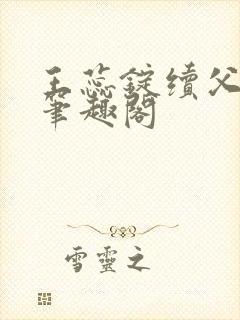 玉蕊錠續父
筆趣閣
雪靈之